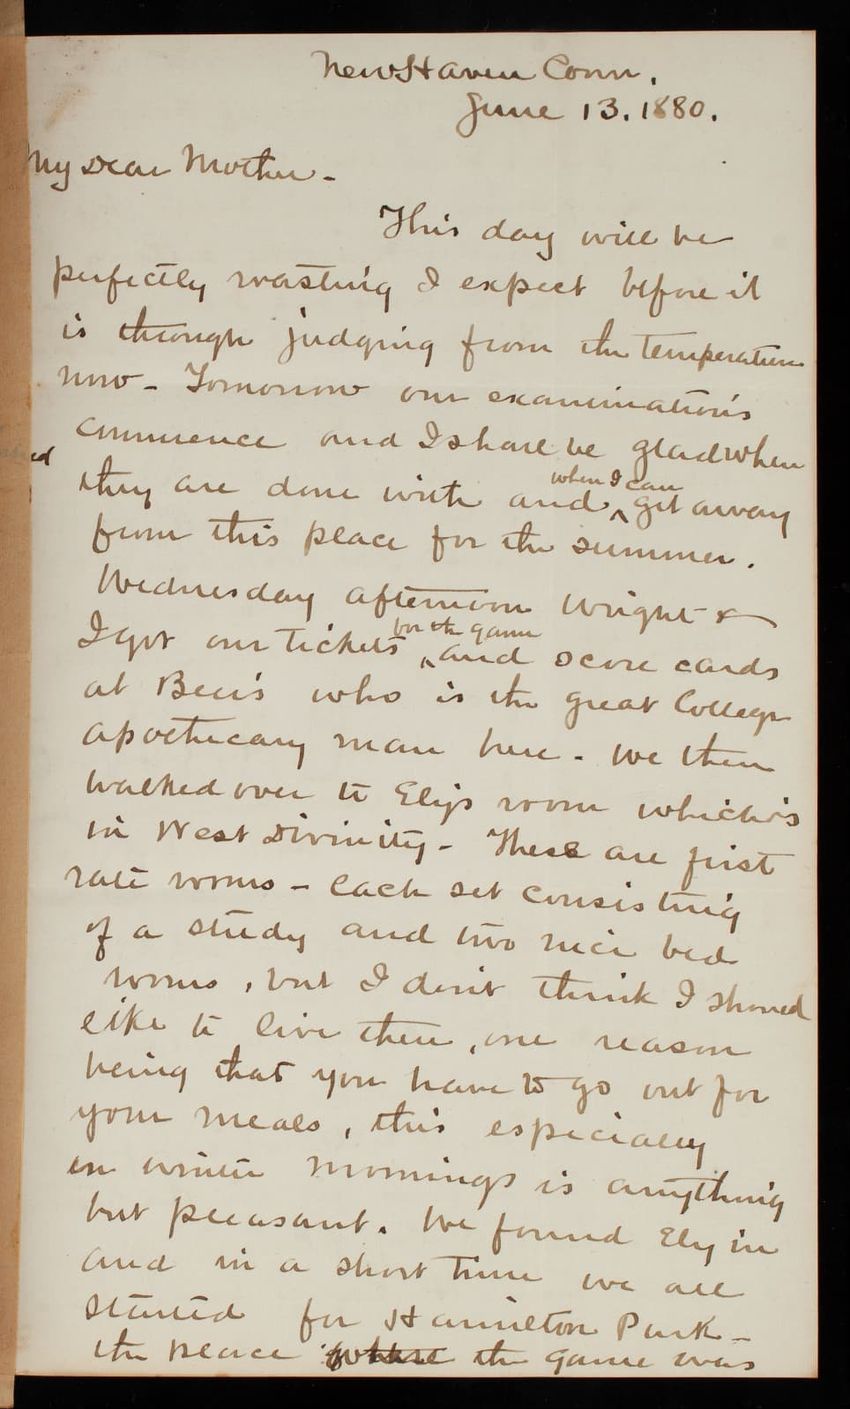 New Haven Conn.
June 13. 1880.
My Dear Mother -
This day will be
perfectly roasting I expect before it
is through judging from the temperature
now - Tomorrow our examinations
commence and I shall be glad when
they are done with and ^ when I can get away
from this place for the summer.
Wednesday afternoon Wright &
I got our tickets ^ for the game and score cards
at Beer's who is the great College
apothecary man here. We then
walked over to Ely's room which is
in West Divinity - These are first
rate rooms - each set consisting
of a study and two nice bed
rooms, but I don't think I should
like to live there, one reason
being that you have to go out for
your meals, this especially
in winter mornings is anything
but pleasant. We found Ely in
and in a short time we all
started for Hamilton Park -
the place where the game was